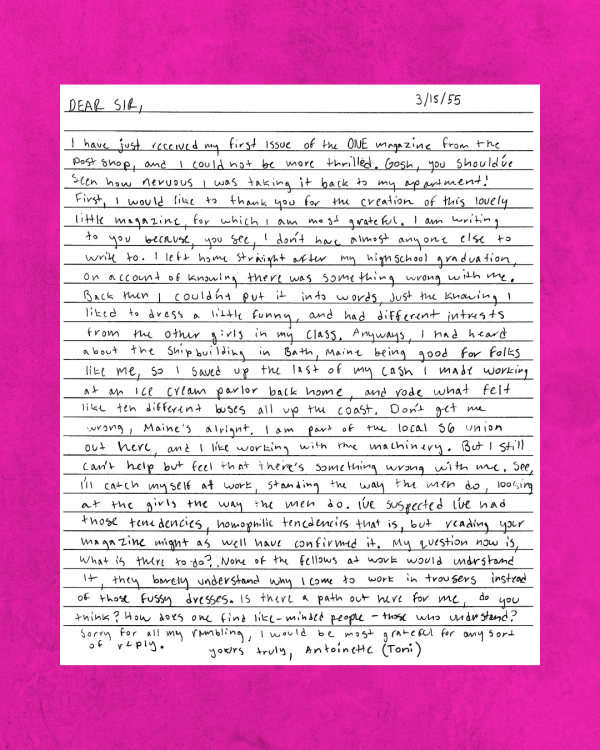 DEAR SIR,
3/15/55
I have just received my first issue of the ONE magazine from the
post shop, and I could not be more thrilled. Gosh, you should've
seen how nervous I was taking it back to my apartment!
First, I would like to thank you for the creation of this lovely
little magazine, for which I am most grateful. I am writing
to you because, you see, I don't have almost anyone else to
write to. I left home straight after my highschool graduation,
on account of knowing there was something wrong with me.
Back then I couldn't put it into words, just the knowing I
liked to dress a little funny, and had different intrests
from the other girls in my class. Anyways, I had heard
about the shipbuilding in Bath, Maine being good for folks
like me, so I saved up the last of my cash I made working
at an ice cream parlor back home, and rode what felt
like ten different buses all up the coast. Don't get me
wrong, Maine's alright. I am part of the local S6 union
out here, and I like working with the machinery. But I still
can't help but feel that there's something wrong with me. See,
I'll catch myself at work, standing the way the men do, looking
at the girls the way the men do. I've suspected I've had
those tenedencies, homophilic tenedencies that is, but reading your
magazine might as well have confirmed it. My question now is,
what is there to do? None of the fellows at work would understand
it, they barely understand why I come to work in trousers instead
of those fussy dresses. Is there a path out here for me, do you
think? How does one find like-minded people - those who understand?
Sorry for all my rambling, I would be most grateful for any sort
of reply. yours truly, Antoinette (Toni)